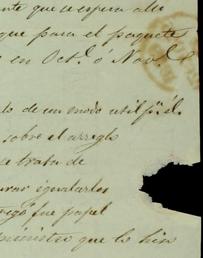 ente que se espera alli
que para el paquete
s en Octe. ó Nove. &
lo de un modo util pr. él.
sobre el arreglo
se trata de
urar igualarlos
fue papel
ministro que lo hizo